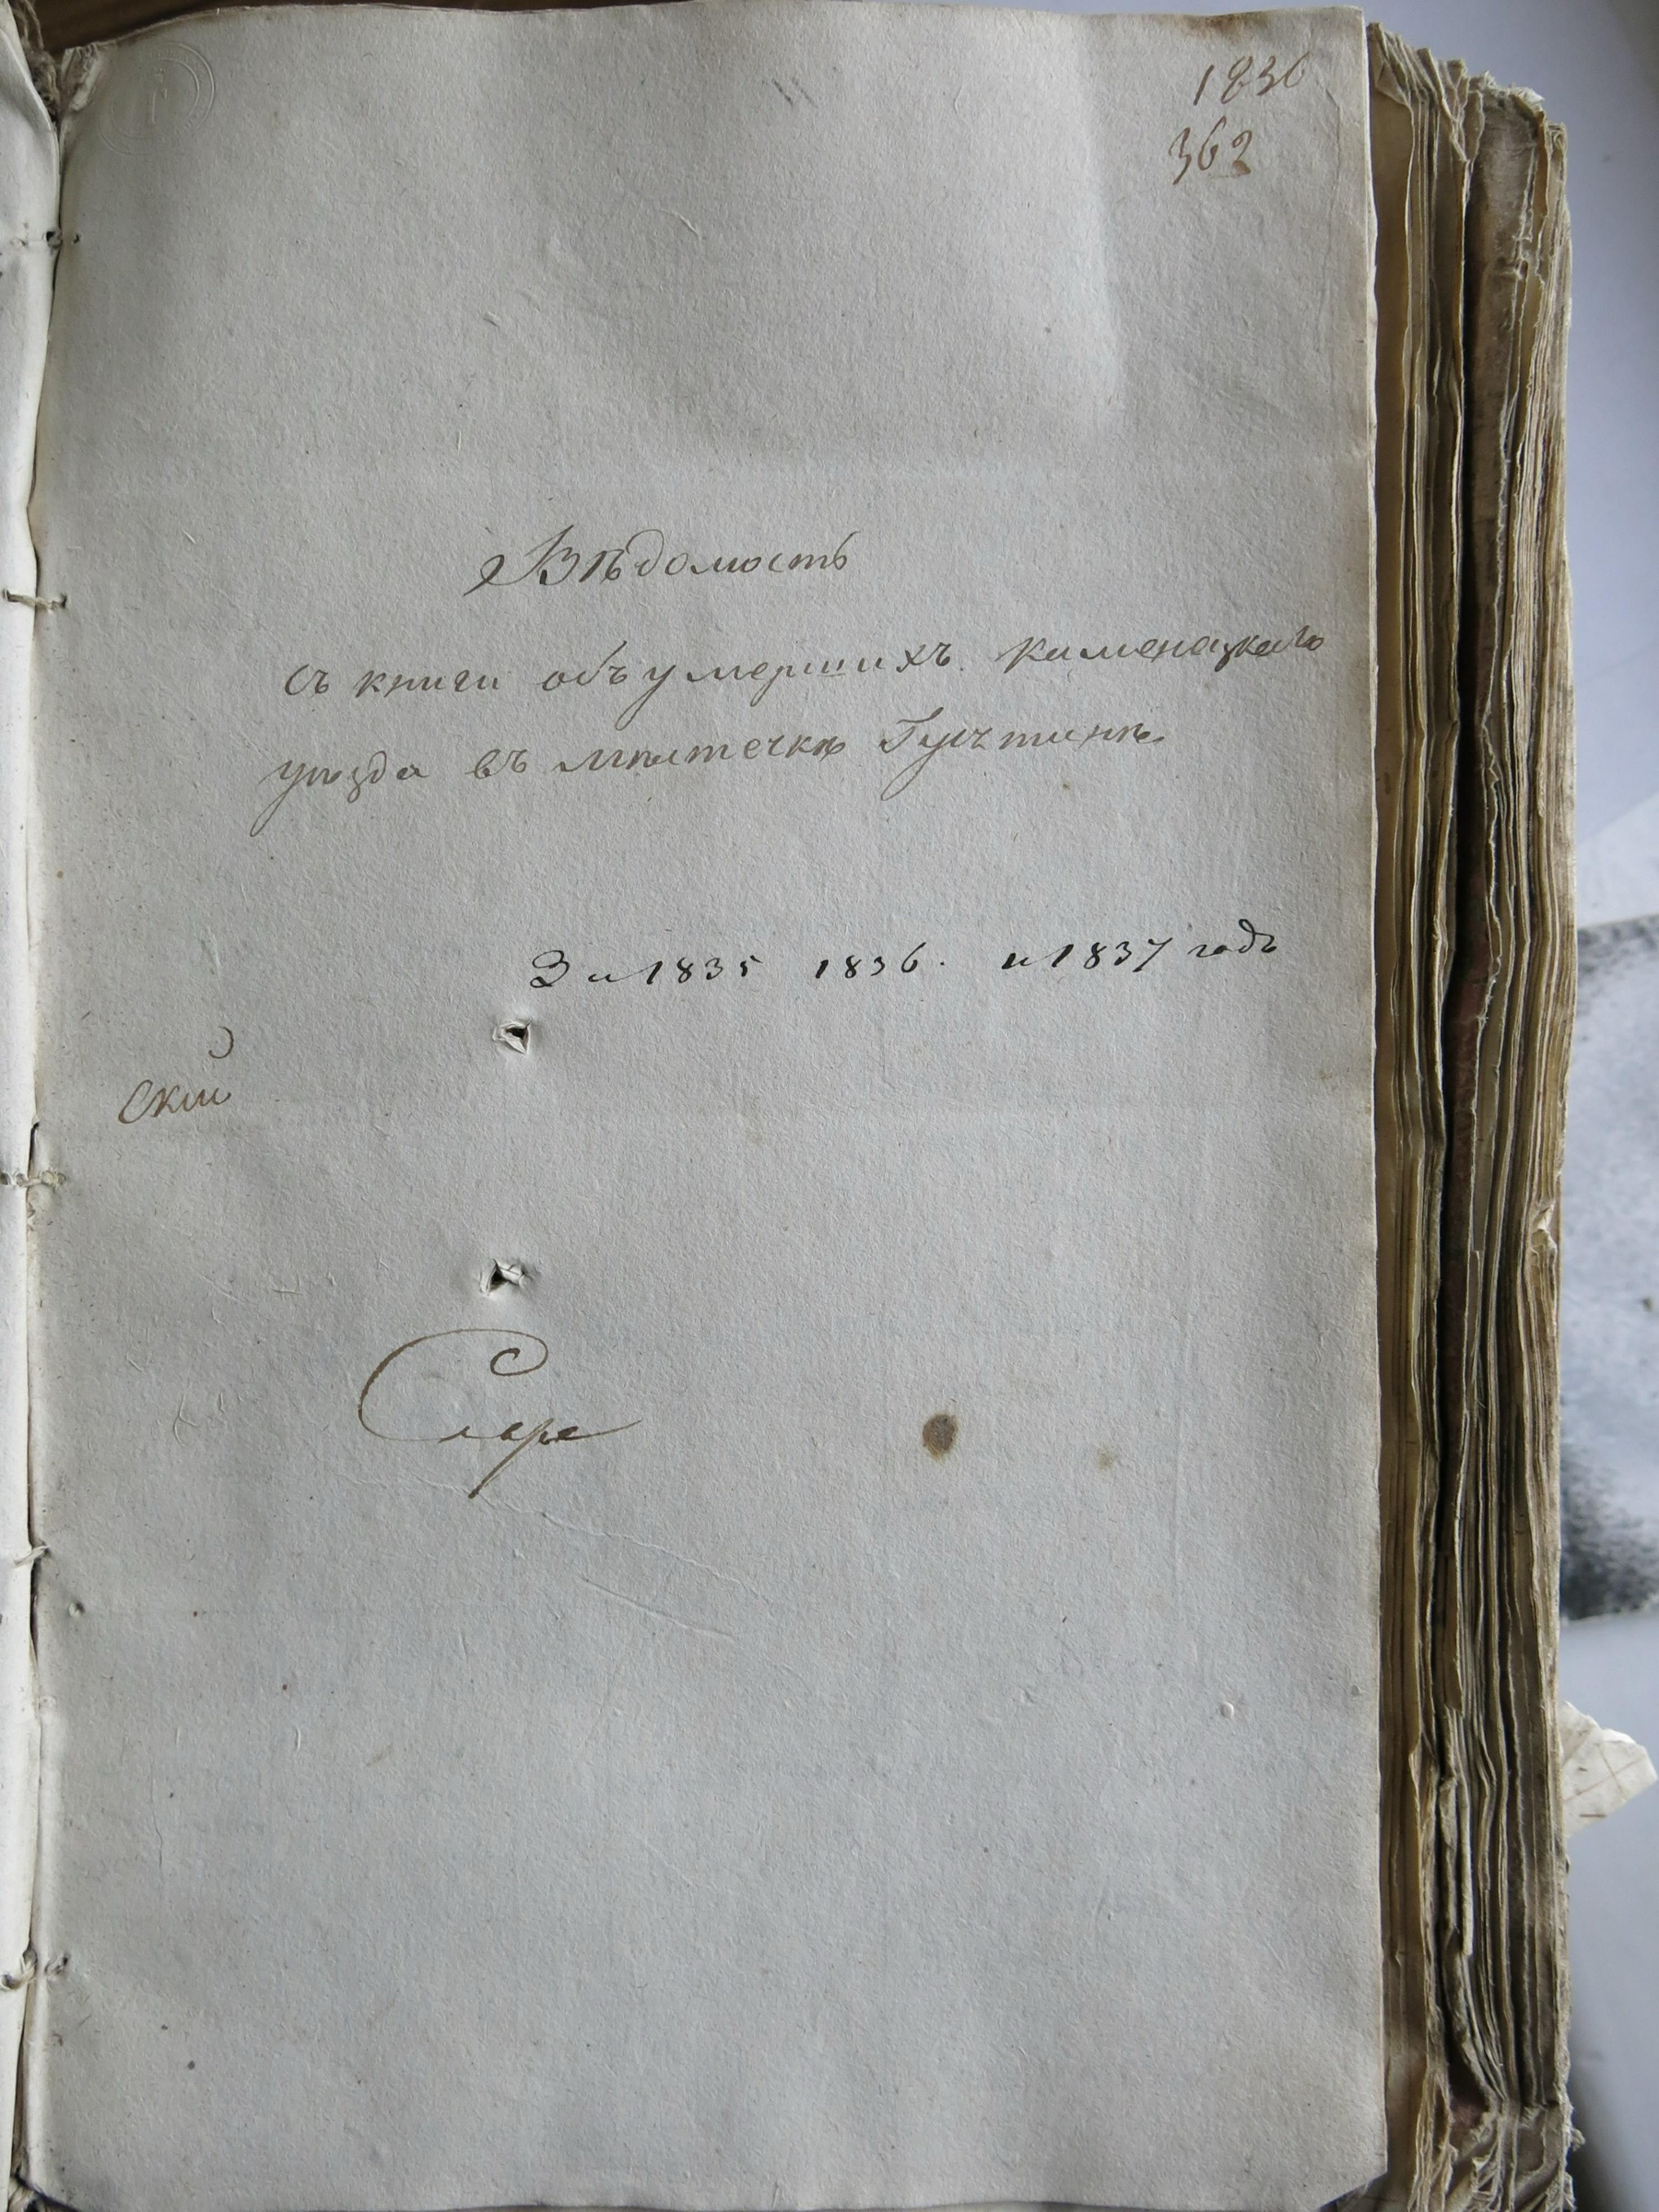 1836
362
Вѣдомость
съ книги объ умершихъ каменецкаго
уѣзда въ мѣстечкѣ Гусѣтинѣ
За 1835 1836. и 1837 годъ
ский